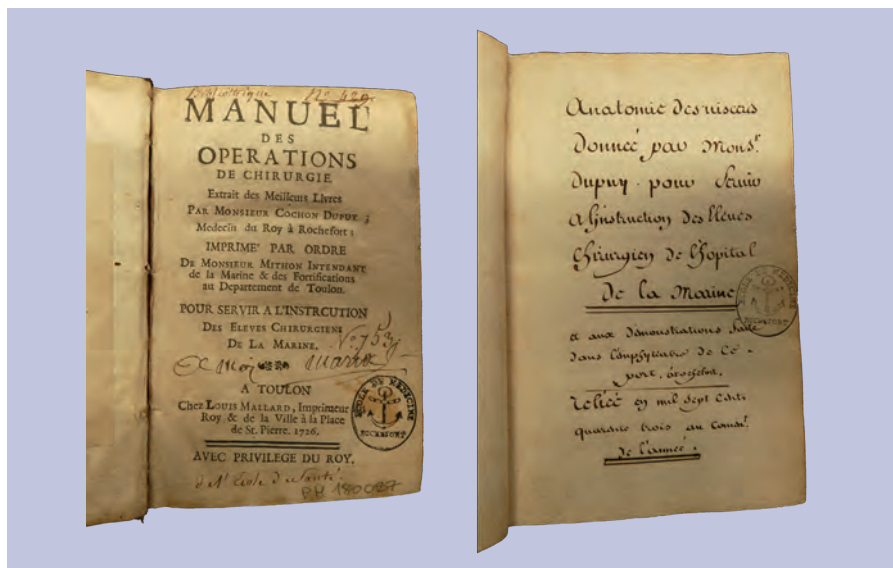 Bibliotheque No 429.
MANUEL
DES
OPERATIONS
DE CHIRURGIE
Extrait des Meilleurs Livres
PAR MONSIEUR COCHON DUPUY ;
Medecin du Roy à Rochefort :
IMPRIME' PAR ORDRE
DE MONSIEUR MITHON INTENDANT
de la Marine & des Fortifications
au Departement de Toulon.
POUR SERVIR A L'INSTRCUTION
DES ELEVES CHIRURGIENS
DE LA MARINE.
A TOULON
Chez LOUIS MALLARD, Imprimeur
Roy & de la Ville à la Place
de St. Pierre. 1726.
AVEC PRIVILEGE DU ROY.
de l'Ecole de Santé.
PH 180087
ECOLE DE MEDECINE
ROCHEFORT
Anatomie des visceres
Donneé par Monsr.
Dupuy pour servir
a l'instruction des Eleves
Chirurgien De l'hopital
De la Marine
et aux Démonstrations faite
dans l'amphiteatre de Ce
port, à rochefort.
relieé en mil sept cent
quarante trois au
De l'anneé.
ECOLE DE MEDECINE
ROCHEFORT